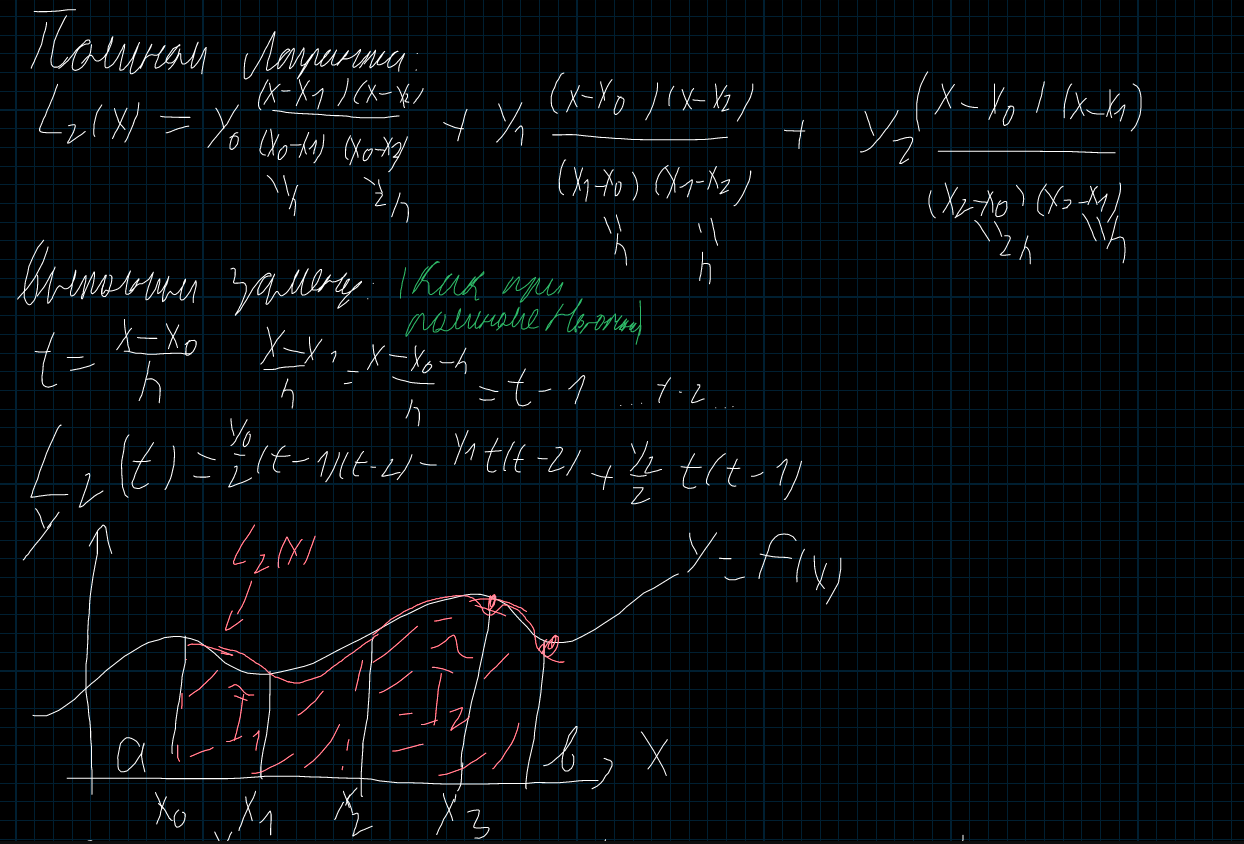 Полином Лагранжа:
L₂(x) = y₀ (x-x₁)(x-x₂) / (x₀-x₁)(x₀-x₂) + y₁ (x-x₀)(x-x₂) / (x₁-x₀)(x₁-x₂) + y₂ (x-x₀)(x-x₁) / (x₂-x₀)(x₂-x₁)
h 2h h h 2h h
Выполним замену: (Как при
полиноме Ньютона)
t = (x-x₀)/h (x-x₁)/h = (x-x₀-h)/h = t-1 ...
L₂(t) = y₀/2 (t-1)(t-2) - y₁t(t-2) + y₂/2 t(t-1)
y L₂(x) y = f(x)
I₁ I₂
a b x
x₀ x₁ x₂ x₃